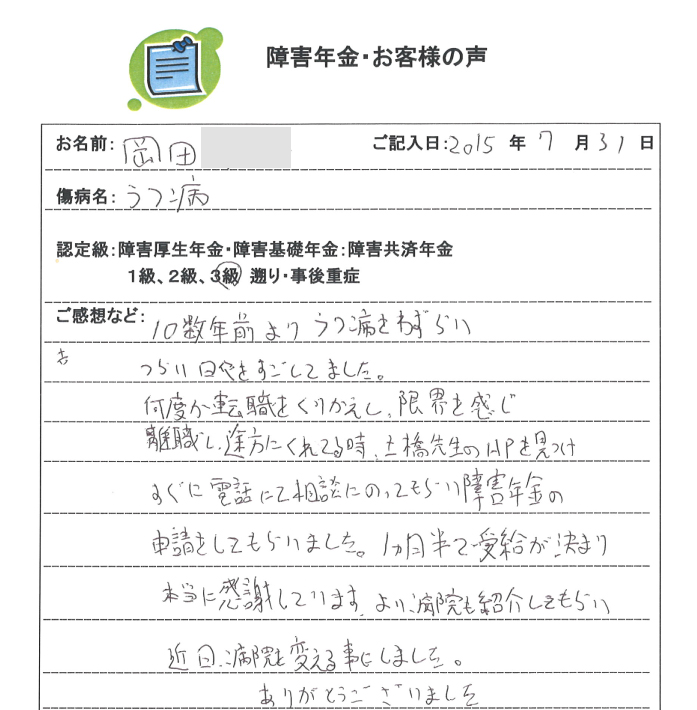 障害年金・お客様の声
お名前: 岡田 ご記入日:2015 年 7 月 31 日
傷病名: うつ病
認定級:障害厚生年金・障害基礎年金:障害共済年金
1級、2級、3級 遡り・事後重症
ご感想など: 10数年前より うつ病をわずらい
つらい日々をすごしてました。
何度か転職をくりかえし、限界を感じ
離職し、途方にくれてる時、土橋先生のHPを見つけ
すぐに電話にて相談にのってもらい障害年金の
申請をしてもらいました。1ヵ月半で受給が決まり
本当に感謝しています。より病院も紹介してもらい
近日、病院を変える事にしました。
ありがとうございました